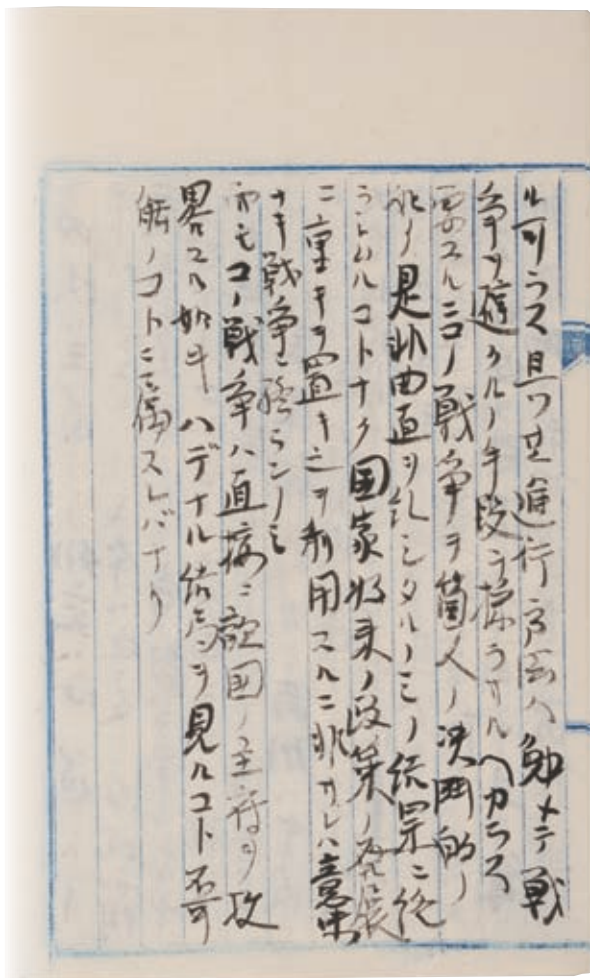 ル可ラス且ツ其進行方面ハ勉メテ戦
争ヲ避クルノ手段ヲ採ラサルヘカラス
要スルニコノ戦争ヲ箇人ノ決闘的ノ
ノ是非曲直ヲ糺シタルノミノ結果ニ終
ラシムルコトナク国家将来ノ政策ノ発展
ニ重キヲ置キ之ヲ利用スルニ非サレハ意味
ナキ戦争ニ終ランノミ
而モコノ戦争ハ直接ニ敵国ノ主府ヲ攻
畧スル如キハデナル結局ヲ見ルコト不可
能ノコトニ属スレバナリ